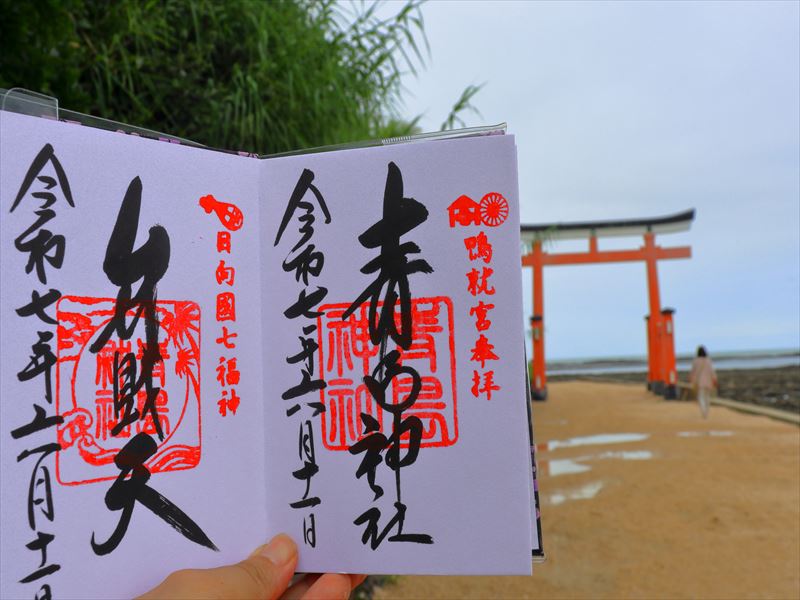 鴨就宮奉拝
青島神社
青島
神社
令和七年六月十一日
日向國七福神
弁財天
青島
神社
令和七年六月十一日